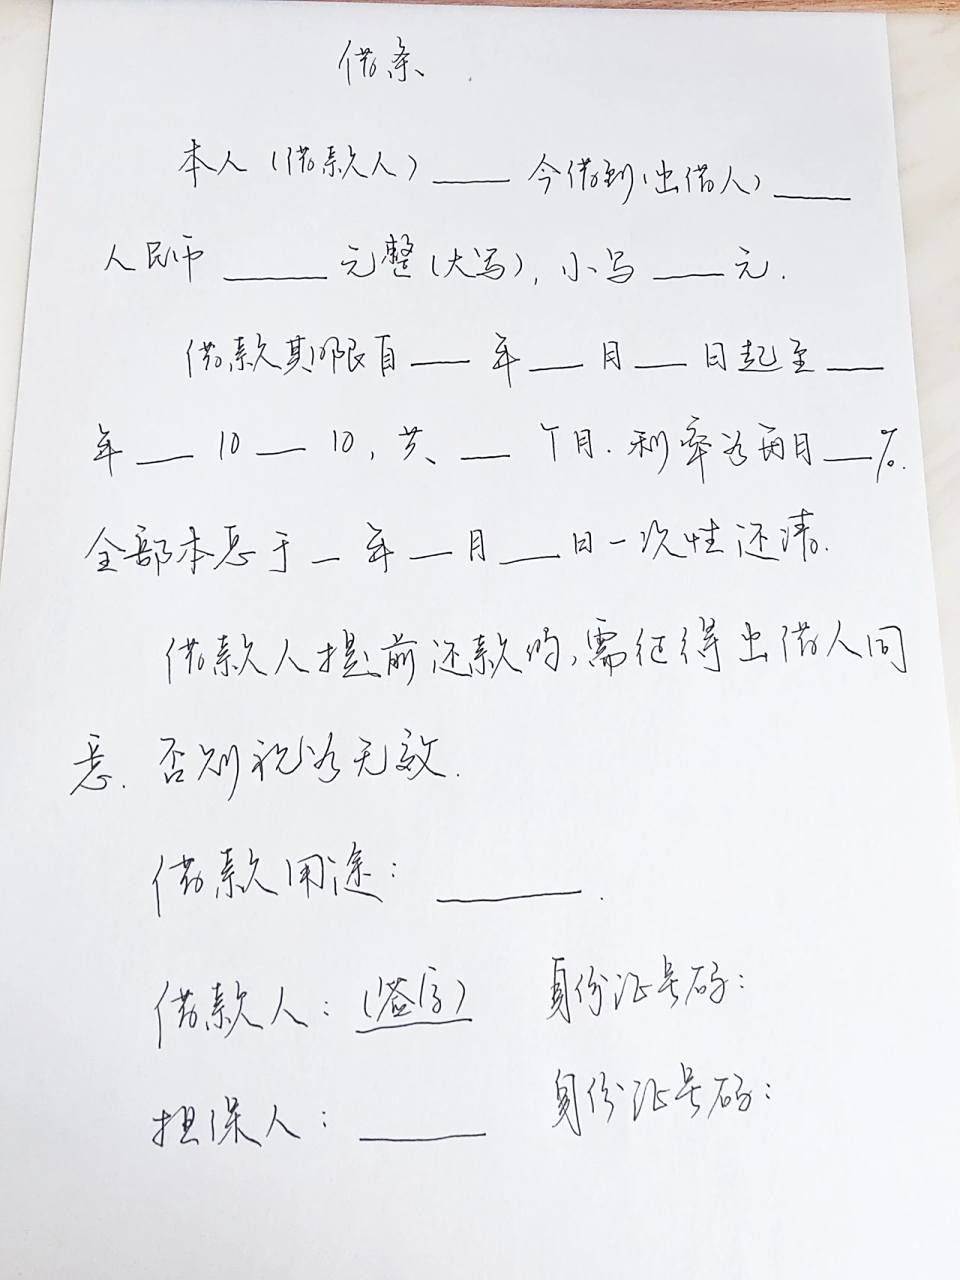 借条
本人(借款人)____今借到(出借人)____
人民币____元整(大写),小写____元.
借款期限自____年____月____日起至____
年____10____10,共____个月.利率为每月____%.
全部本息于__年____月____日一次性还清.
借款人提前还款的,需征得出借人同
意.否则视为无效.
借款用途:________.
借款人:(签字) 身份证号码:
担保人:________ 身份证号码: